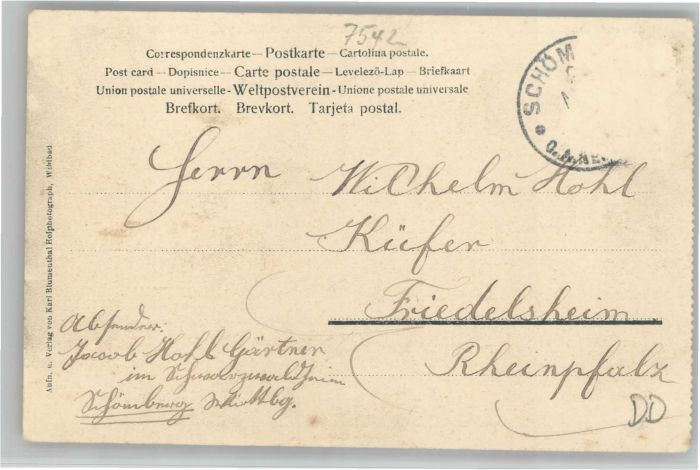 7542
Correspondenzkarte — Postkarte — Cartolina postale.
Post card — Dopisnice — Carte postale — Levelező-Lap — Briefkaart
Union postale universelle - Weltpostverein - Unione postale universale
Brefkort. Brevkort. Tarjeta postal.
SCHÖM
O.A.NE
Herrn Wilhelm Hohl
Küfer
Friedelsheim.
Rheinpfalz
Absender:
Jacob Hohl Gärtner
im Schwarzwaldheim
Schömberg Wttbg.
DD
Aufn. u. Verlag von Karl Blumenthal Hofphotograph, Wildbad